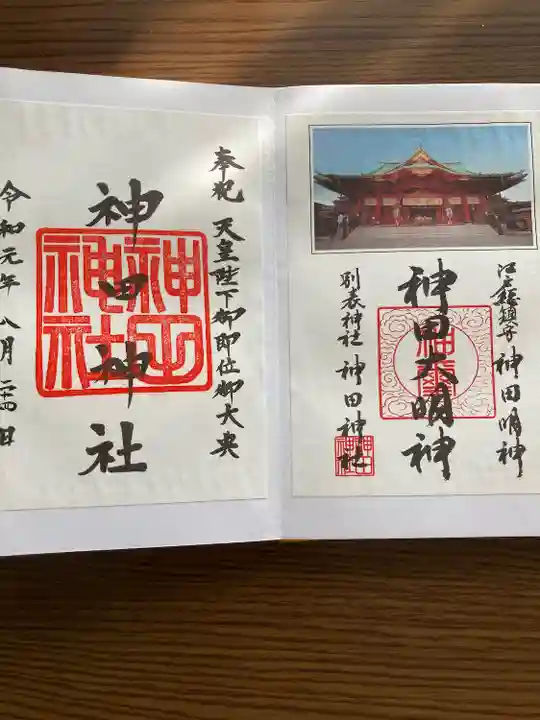 江戸総鎮守 神田明神
神田大明神
別表神社 神田神社
奉祝 天皇陛下御即位御大典
神田神社
令和元年八月二十四日
神田神社